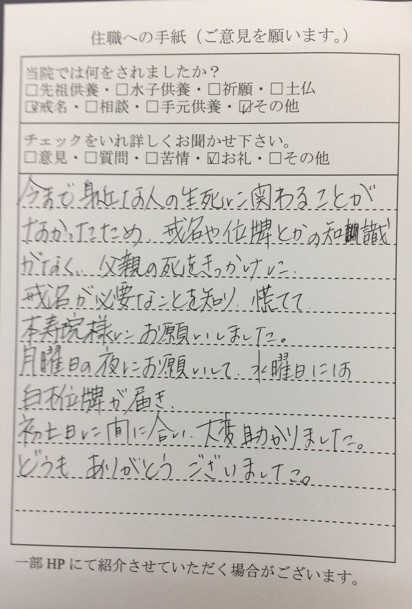 住職への手紙（ご意見を願います。）
当院では何をされましたか？
□先祖供養・□水子供養・□祈願・□土仏
☑戒名・□相談・□手元供養・☑その他
チェックをいれ詳しくお聞かせ下さい。
□意見・□質問・□苦情・☑お礼・□その他
今まで身近な人の生死に関わることが
なかったため、戒名や位牌とかの知識
がなく、父親の死をきっかけに、
戒名が必要なことを知り、慌てて
本寿院様にお願いしました。
月曜日の夜にお願いして、水曜日には
白木位牌が届き、
初七日に間に合い、大変助かりました。
どうも ありがとう ございました。
一部HPにて紹介させていただく場合がございます。